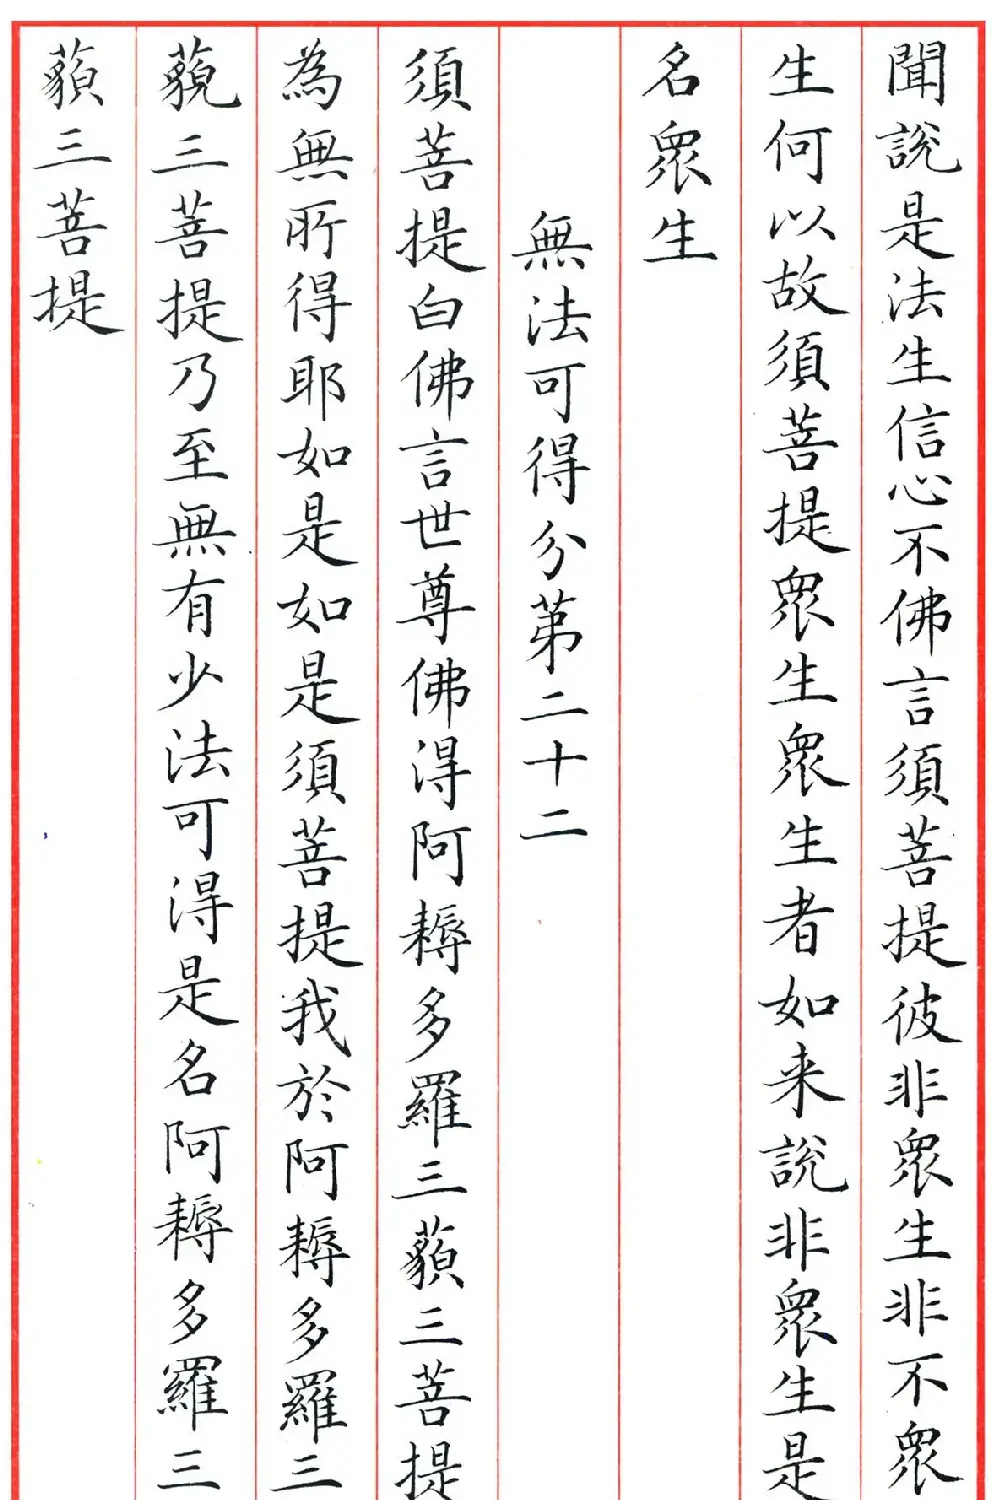 聞說是法生信心不佛言須菩提彼非眾生非不眾
生何以故須菩提眾生眾生者如来說非眾生是
名眾生
無法可得分第二十二
須菩提白佛言世尊佛得阿耨多羅三藐三菩提
為無所得耶如是如是須菩提我於阿耨多羅三
藐三菩提乃至無有少法可得是名阿耨多羅三
藐三菩提